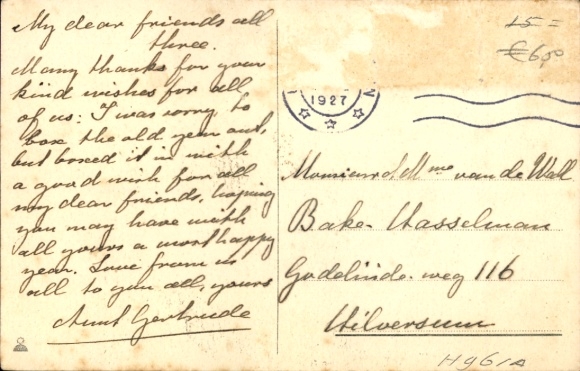 My dear friends all
three.
Many thanks for your
kind wishes for all
of us: I was sorry to
box the old year out,
but boxed it in with
a good wish for all
my dear friends, hoping
you may have with
all yours a most happy
year. Love from us
all to you all, yours
Aunt Gertrude
15=
€6,50
1927
Monsieur et Mme van de Wall
Bake-Hasselman
Godelinde-weg 116
Hilversum
H961A